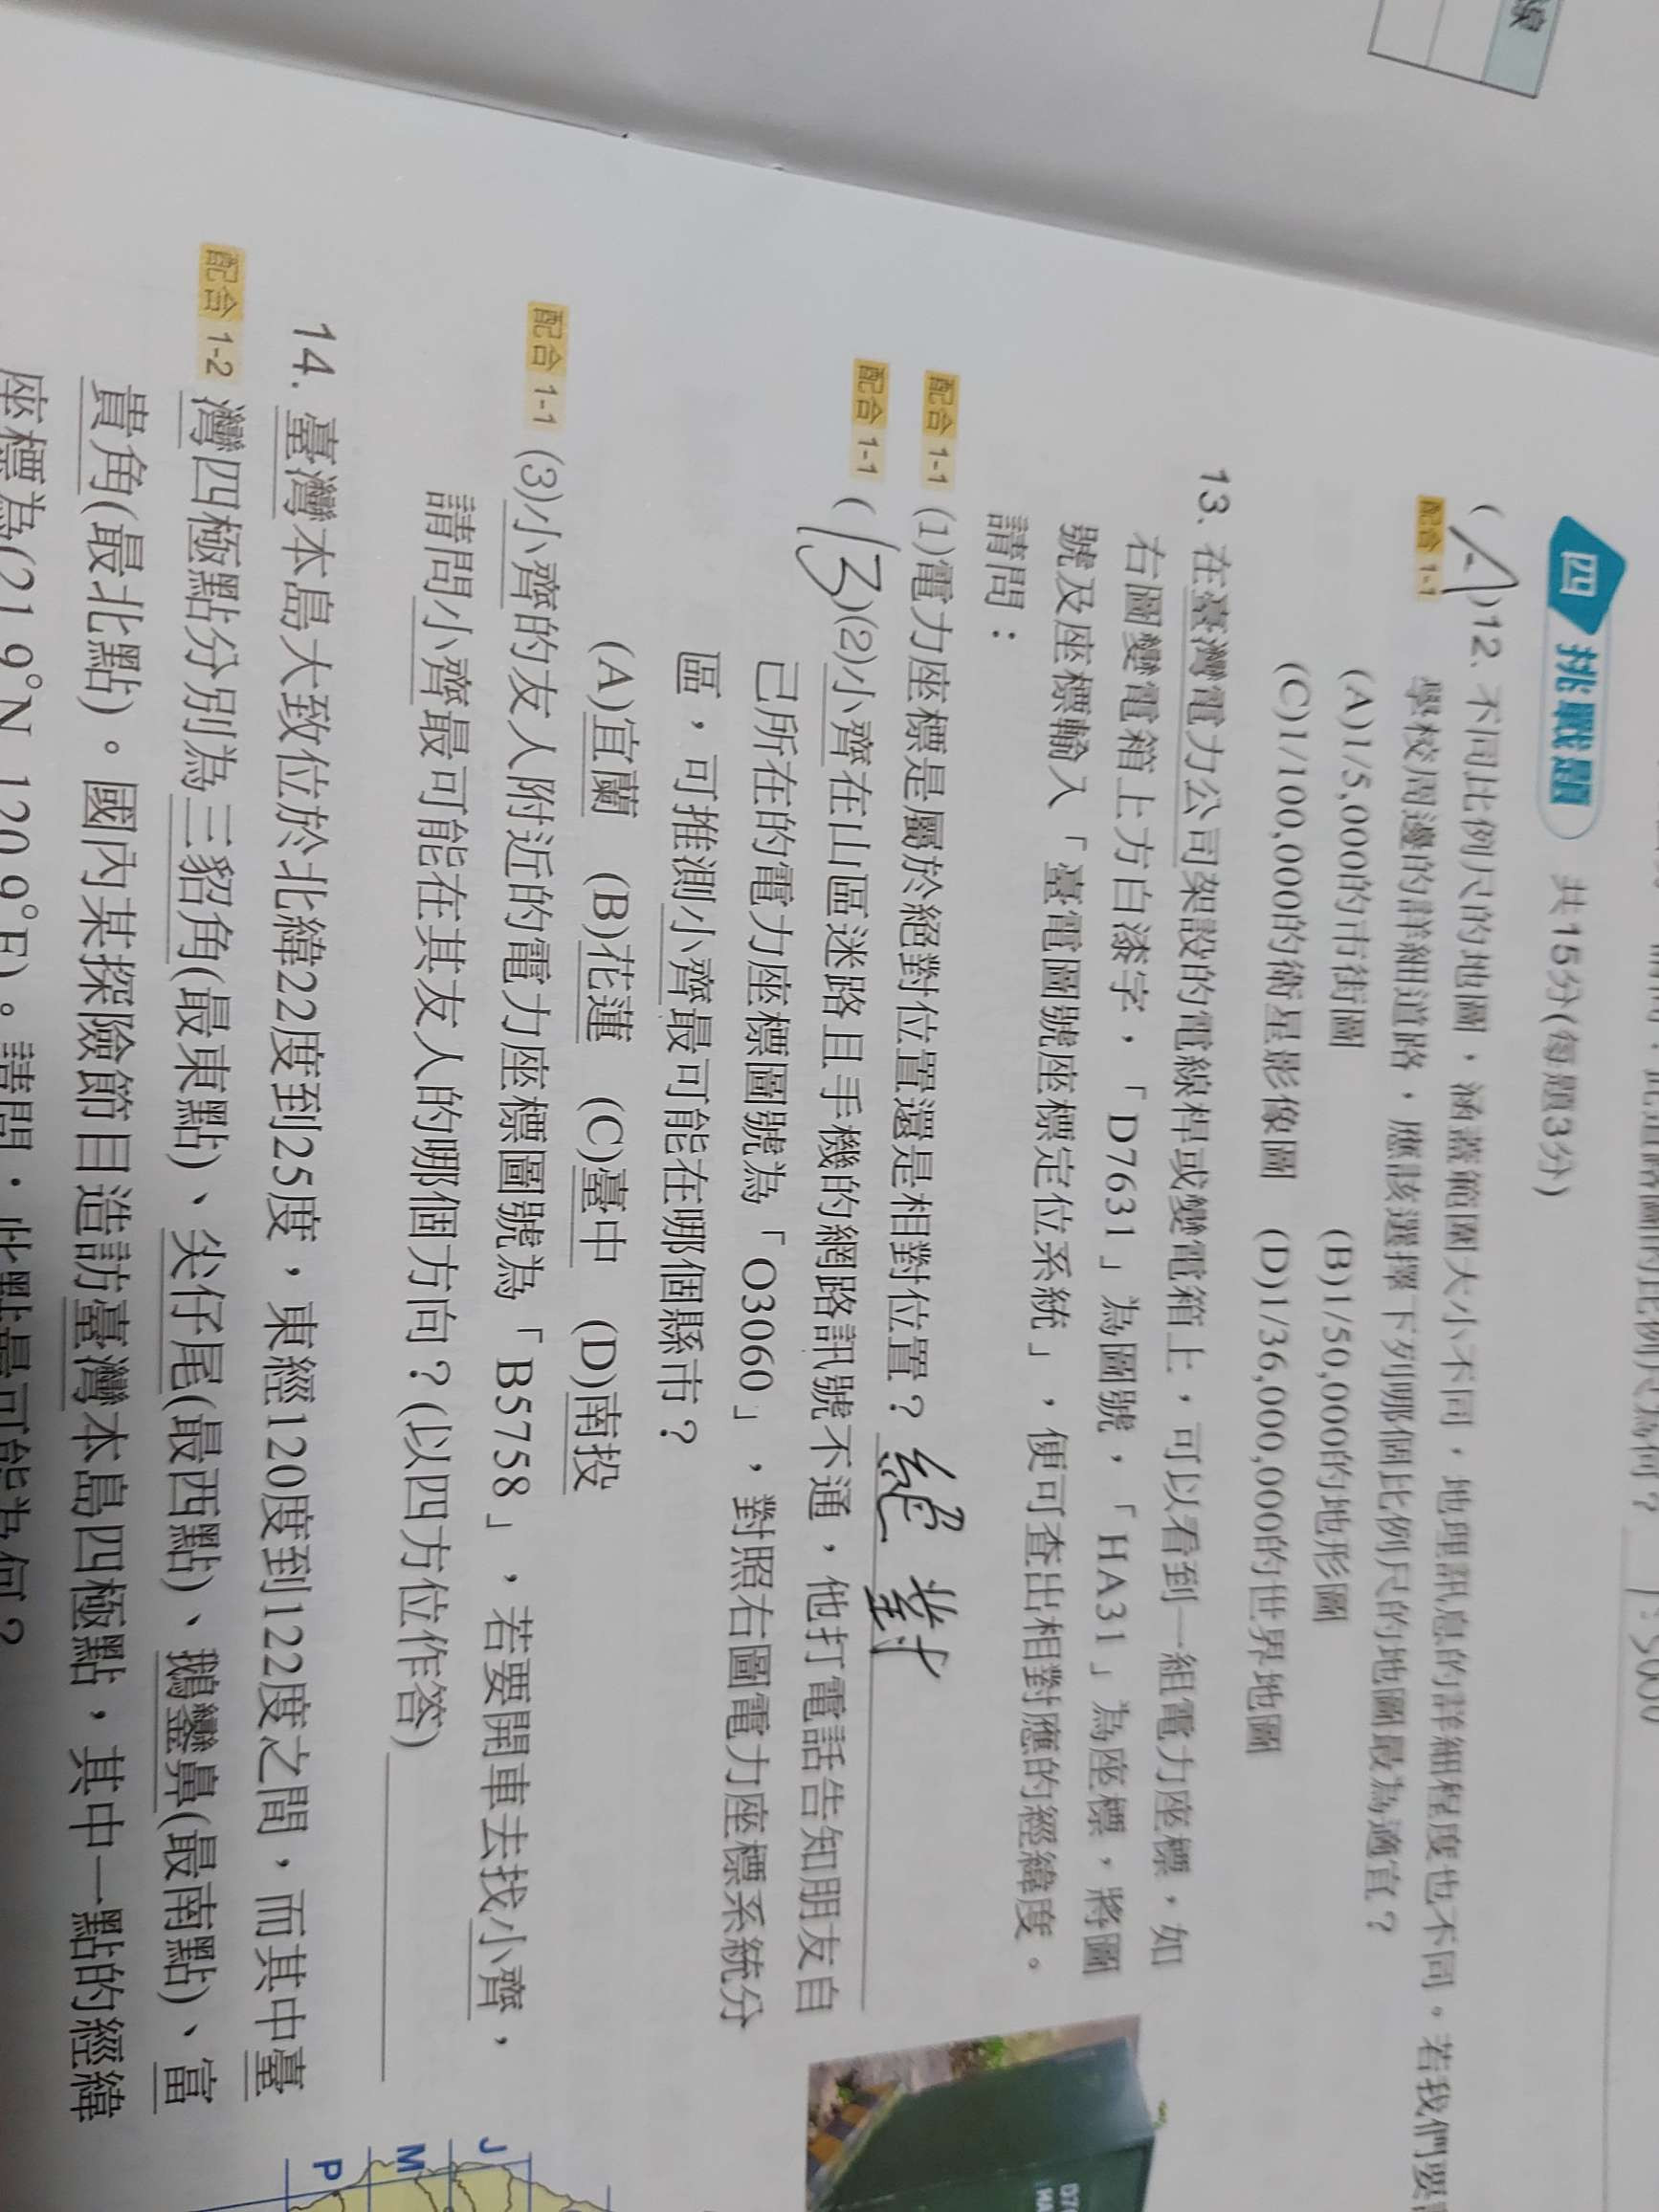 四 挑戰題 共15分(每題3分)
(A)12. 不同比例尺的地圖，涵蓋範圍大小不同，地理訊息的詳細程度也不同。若我們要
配合 1-1 學校周邊的詳細道路，應該選擇下列哪個比例尺的地圖最為適宜？
(A)1/5,000的市街圖 (B)1/50,000的地形圖
(C)1/100,000的衛星影像圖 (D)1/36,000,000的世界地圖
13. 在臺灣電力公司架設的電線桿或變電箱上，可以看到一組電力座標，如
右圖變電箱上方白漆字，「D7631」為圖號，「HA31」為座標，將圖
號及座標輸入「臺電圖號座標定位系統」，便可查出相對應的經緯度。
請問：
配合 1-1 (1)電力座標是屬於絕對位置還是相對位置？絕對
配合 1-1 (B)(2)小齊在山區迷路且手機的網路訊號不通，他打電話告知朋友自
己所在的電力座標圖號為「O3060」，對照右圖電力座標系統分
區，可推測小齊最可能在哪個縣市？
(A)宜蘭 (B)花蓮 (C)臺中 (D)南投
配合 1-1 (3)小齊的友人附近的電力座標圖號為「B5758」，若要開車去找小齊，
請問小齊最可能在其友人的哪個方向？(以四方位作答)
14. 臺灣本島大致位於北緯22度到25度，東經120度到122度之間，而其中臺
配合 1-2 灣四極點分別為三貂角(最東點)、尖仔尾(最西點)、鵝鑾鼻(最南點)、富
貴角(最北點)。國內某探險節目造訪臺灣本島四極點，其中一點的經緯
座標為(21.9°N,120.9°E)。請問：此點最可能為何？
J
M
P